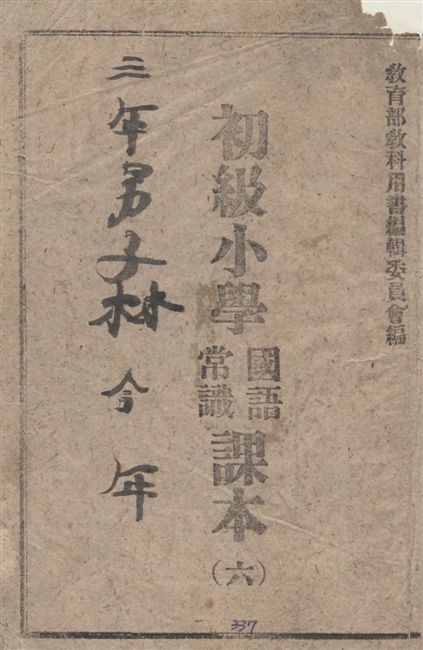 教育部教科用書編輯委員會編
初級小學國語常識課本(六)
三年男子林今年
337